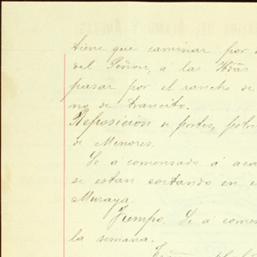 tiene que caminar por
del Señor, a las
pasar por el rancho de
no de transito.
Reposicion de postes,
de Menores.
Se a comensado á
se estan cortando en
Muraya.
Tiempo. Se a
la semana.